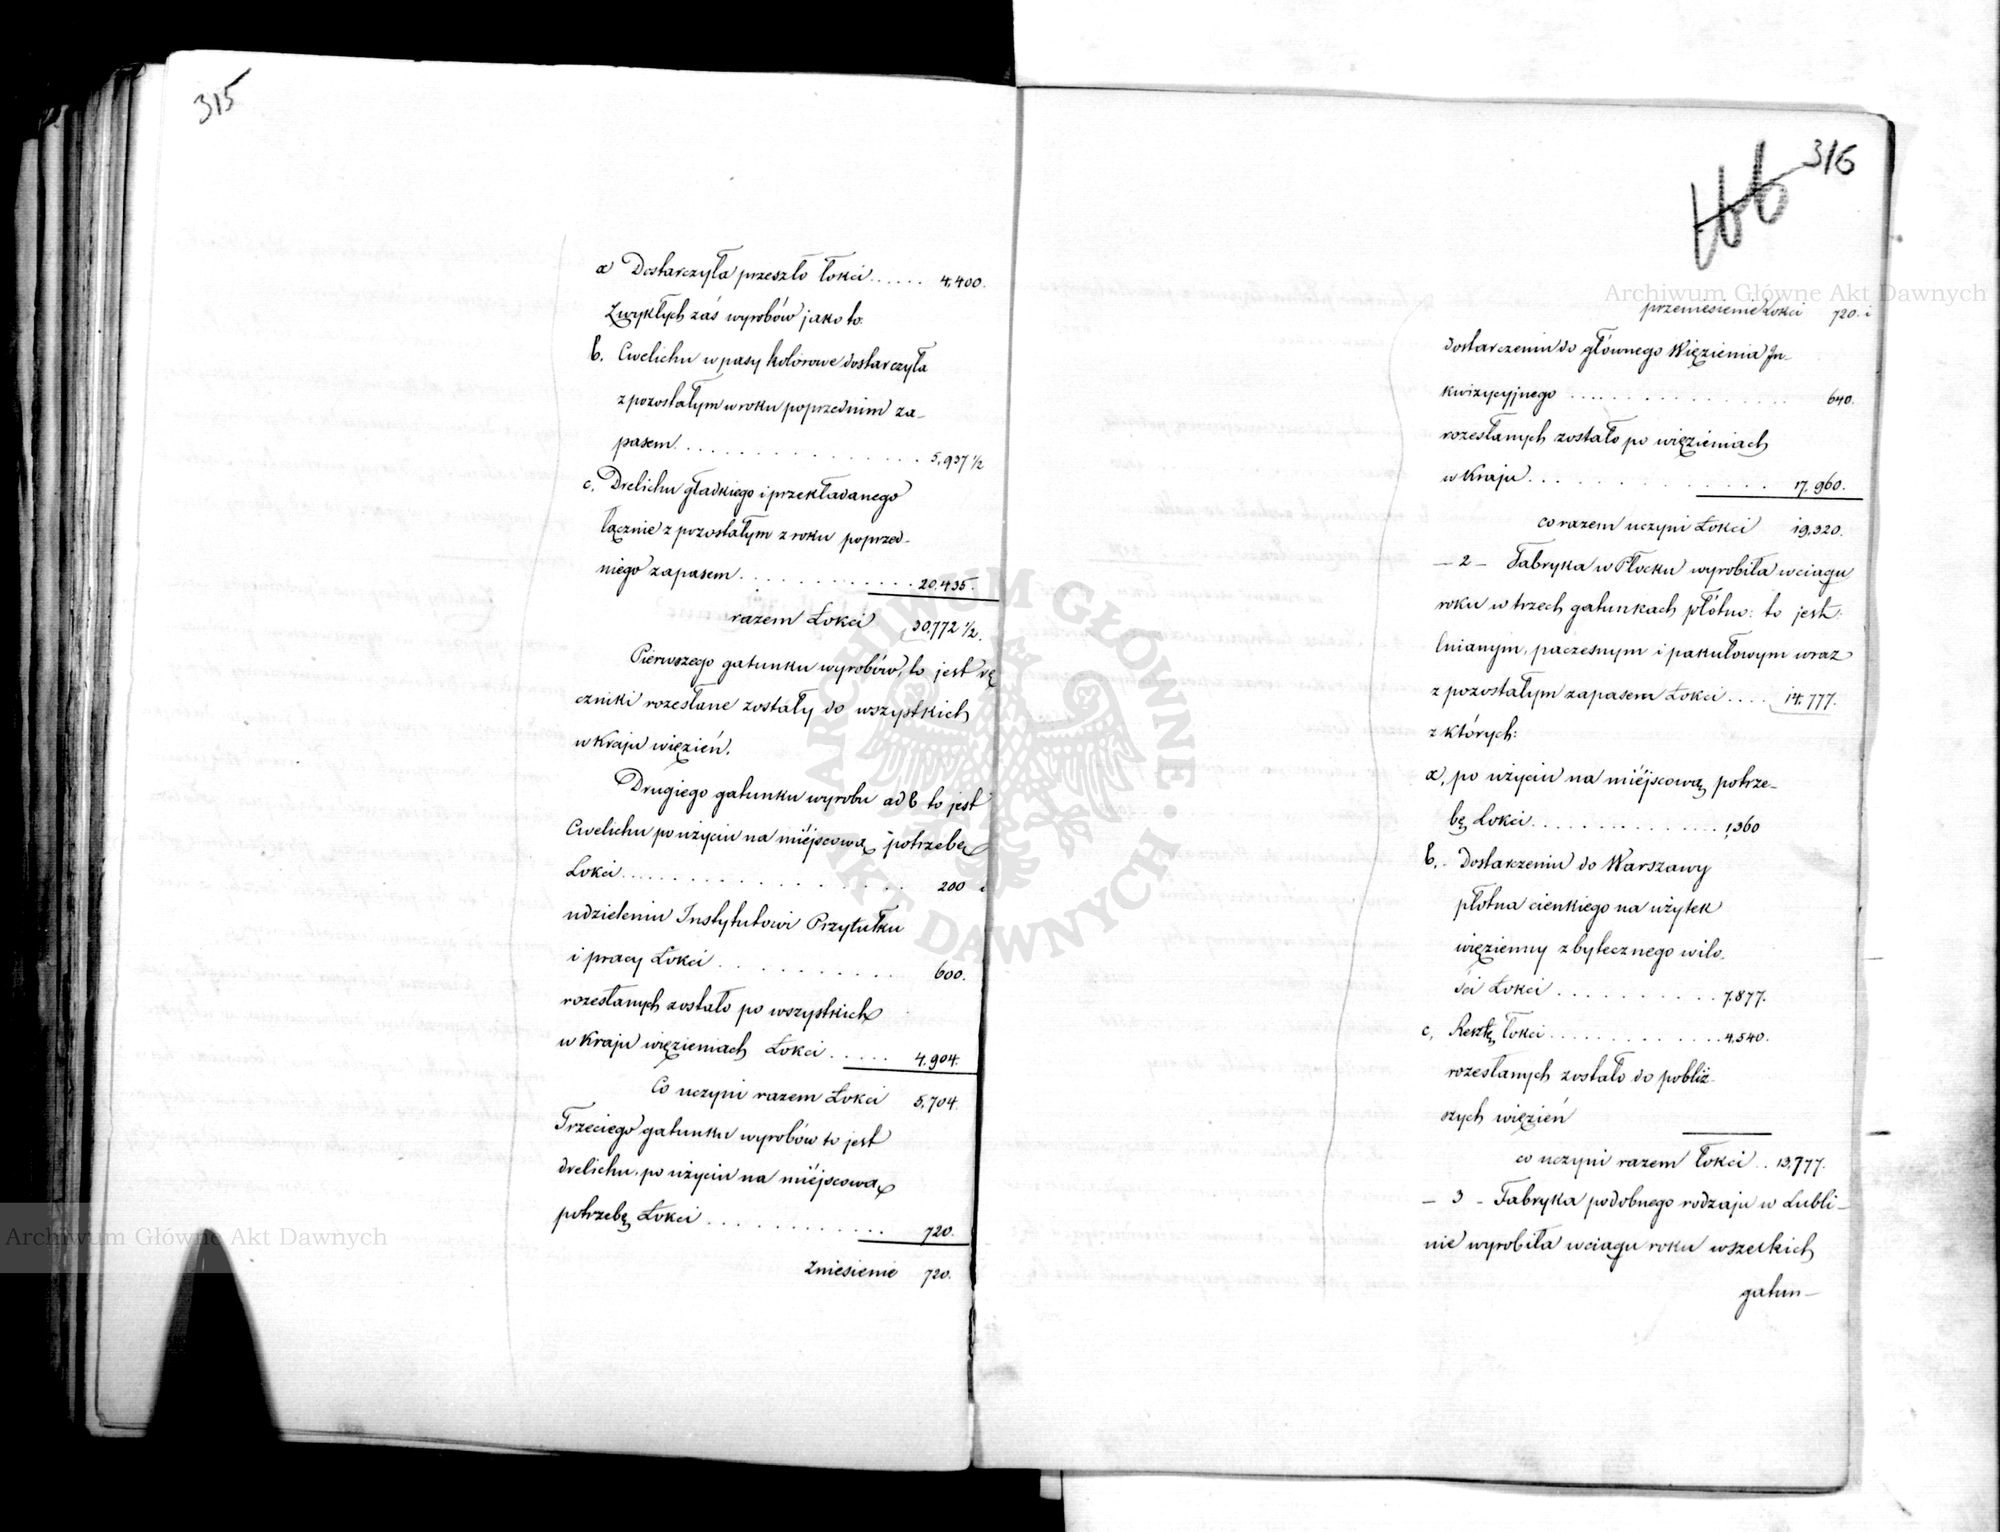 315
a Dostarczyła przeszło łokci...... 4,400.
Zwykłych zaś wyrobów jako to:
b. Cwelichu w pasy kolorowe dostarczyła
z pozostałym w roku poprzednim za-
pasem................ 5,937 1/2
c. Drelichu gładkiego i przekładanego
łącznie z pozostałym z roku poprzed-
niego zapasem............. 20,435.
razem Łokci 30,772 1/2.
Pierwszego gatunku wyrobów, to jest rę
czniki rozesłane zostały do wszystkich
w Kraju więzień.
Drugiego gatunku wyrobu ad b to jest
Cwelichu po użyciu na miéjscową potrzebę
Łokci.................. 200 i
udzieleniu Instytutowi Przytułku
i pracy Łokci........... 600.
rozesłanych zostało po wszystkich
w Kraju więzieniach Łokci..... 4,904.
Co uczyni razem Łokci 5,704.
Trzeciego gatunku wyrobów to jest
drelichu, po użyciu na miéjscową
potrzebę Łokci............ 720.
Zniesienie 720.
316
166
przeniesienie Łokci 720. i
dostarczeniu do głównego Więzienia In-
kwizycyjnego................ 640.
rozesłanych zostało po więzieniach
w Kraju................ 17,960.
co razem uczyni Łokci 19,320.
– 2 – Fabryka w Płocku wyrobiła w ciągu
roku w trzech gatunkach płótno: to jest:
lnianym, paczesnym i pakułowym wraz
z pozostałym zapasem Łokci.... 14,777.
z których:
a, po użyciu na miéjscową potrze-
bę Łokci............... 1,360
b, Dostarczeniu do Warszawy
płótna cienkiego na użytek
więzienny zbytecznego w ilo-
ści Łokci........... 7,877.
c, Resztę łokci............. 4,540.
rozesłanych zostało do pobliż-
szych więzień
co uczyni razem łokci.. 13,777.
– 3 – Fabryka podobnego rodzaju w Lubli-
nie wyrobiła w ciągu roku wszelkich
gatun-
Archiwum Główne Akt Dawnych
Archiwum Główne Akt Dawnych
ARCHIWUM GŁÓWNE AKT DAWNYCH